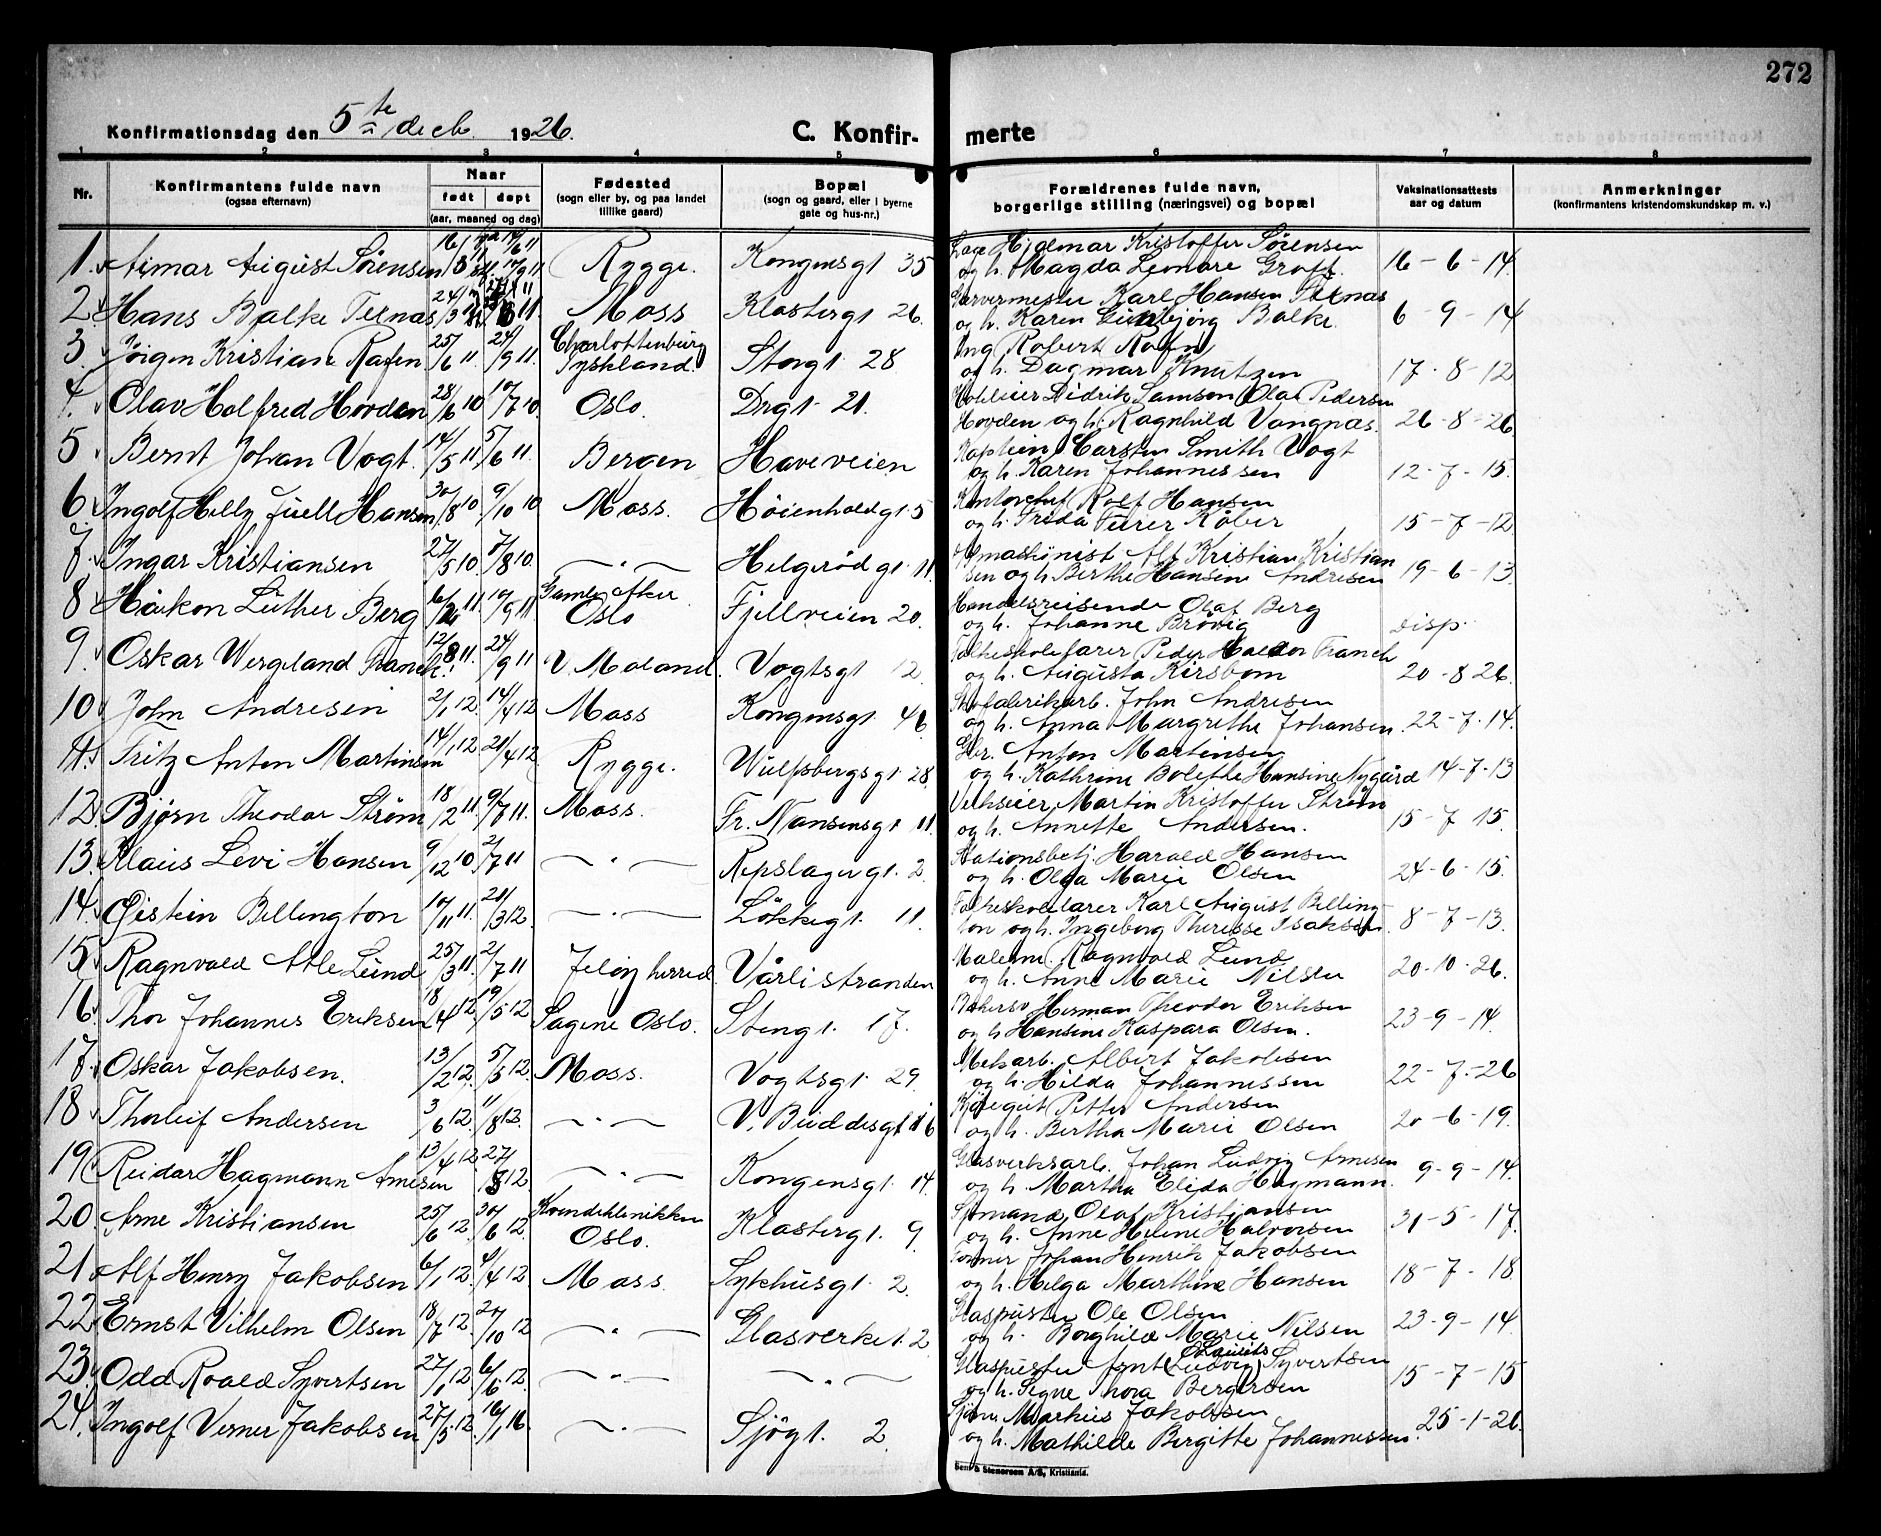 272
Konfirmationsdag den 5te decb. 1926.
C. Konfir- merte
1 2 3 4 5 6 7 8
Nr.
Konfirmantens fulde navn
(ogsaa efternavn)
Naar
født døpt
(aar, maaned og dag)
Fødested
(sogn eller by, og paa landet
tillike gaard)
Bopæl
(sogn og gaard, eller i byerne
gate og hus-nr.)
Forældrenes fulde navn,
borgerlige stilling (næringsvei) og bopæl
Vaksinationsattests
aar og datum
Anmerkninger
(konfirmantens kristendomskundskap m. v.)
1. August Sørensen Rygge. Kongensgt 35 Kristoffer Sørensen
og h. Magda Leonore 16-6-14
2. Hans Balke Ternæs Moss Klostergt 26. Garvermester Karl Hansen Ternæs
og h. Karen Balke. 6-9-14
3. Jørgen Kristian Rafen 25/6 11. 24/9 11. Charlottenburg
Tyskland. Storgt 28 Ing Robert Rafn
og h. Dagmar Knutzen 17-8-12
4. Olav Halfred Hovden 28/6 10 17/7 10. Oslo. Drgt. 21. Didrik Samson Olai Pedersen
Hovden og h. Ragnhild Vangnæs. 26-8-26
5. Bernt Johan Vogt. 14/5 11 5/6 11. Bergen Haveveien Kaptein Carsten Smith Vogt
og h. Karen Johannessen 12-7-15.
6. Ingolf Helly Juell Hansen 30/8 10. 9/10 10 Moss. Høienholdgt 5 Kontorchef Rolf Hansen
og h. Frida Køber 15-7-12
7. Ingar Kristiansen 27/5 10. 7/8 10. —"— Helgerødgt. 11. maskinist Alf Kristian Kristian
sen og h. Berthe Hansine Andresen 19-6-13.
8 Håkon Luther Berg 11. 11. Gamle Aker
Oslo Fjellveien 20. Handelsreisende Olaf Berg
og h. Johanne Brøvig disp.
9. Oskar Wergeland Franck. 12/8 11. 24/9 11 V. Moland. Vogtsgt 12. Folkeskolelærer Peder Halldor Franck
og h. Augusta Kirsbom 20-8 26.
10. John Andresen 2/1 12. 14/4 12 Moss Kongensgt. 46 John Andresen
og h. Anna Margrethe Johansen. 22-7-14.
11. Fritz Anton Martinsen 14/1 12 21/4 12 Rygge. Wulfsbergsgt 28. Anton Martinsen
og h. Kathrine Bolethe Hansine Nygård 14-7-13
12. Bjørn Theodor Strøm 18/2 11. 9/7 11. Moss. Fr. Nansensgt 11. Verkseier Martin Kristoffer Strøm
og h. Annette Andersen. 15-7 15.
13. Klaus Levi Hansen 9/12 10. 2/7 11 —"— Repslagergt. 2. Stationsbetj. Harald Hansen
og h. Olga Marie Olsen 24-6-15.
14. Øistein Bellington 17/11 11. 21/3 12. —"— Løkkegt. 11. Folkeskolelærer Karl August Belling
ton og h. Ingeborg Theresse Isaksen. 8-7-13.
15. Ragnvald Atle Lund 25/3 11. 2/7 11 Jeløy herred. Vårlistranden Malerm. Ragnvald Lund
og h. Anne Marie Nilsen 20-10-26.
16. Thor Johannes Eriksen 18/4 12 19/5 12 Sagene Oslo. Stengt. 17. Herman Theodor Eriksen
og h Hansine Kaspara Olsen. 23-9-14.
17. Oskar Jakobsen. 13/2 12. 5/5 12. Moss. Vogtsgt. 29. Mekarb. Albert Jakobsen
og h. Hilda Johannessen 22-7-26
18. Thorleif Andersen 3/6 12. 11/8 12. —"— V. Buddesgt 16 Petter Andersen
og h. Bertha Marie Olsen 20-6-19.
19. Reidar Hagmann Arnesen 13/4 12 12. —"— Kongensgt. 14. Glasverksarb. Johan Ludvig Arnesen
og h. Martha Elida Hagmann. 9-9-14.
20. Arne Kristiansen 25/6 12. 30/6 12 Kvindeklinikken
Oslo. Klostergt. 9. Sjømand Olaf Kristiansen
og h. Anne Helene Halvorsen 31-5-17.
21. Alf Henry Jakobsen 6/1 12. 4/4 12 Moss. Sykhusgt. 2. Former Johan Henrik Jakobsen
og h. Helga Marthine Hansen 18-7-18
22. Ernst Vilhelm Olsen 18/7 12. 27/10 12 —"— Glasverket. 2. Glaspuster Ole Olsen
og h. Borghild Marie Nilsen 23-9-14
23. Odd Roald Syvertsen 27/1 12 6/5 12. —"— —"— Glaspuster Arnt (Ludvig) Lauits Syvertsen
og h. Signe Thora Bergersen 15-7-15
24. Ingolf Verner Jakobsen 27/5 12. 16/1 16. —"— Sjøgt. 2. Sjøm. Markus Jakobsen
og h. Mathilde Bergitte Johannessen. 25-1-26.
Sem & Stenersen A/S, Kristiania.